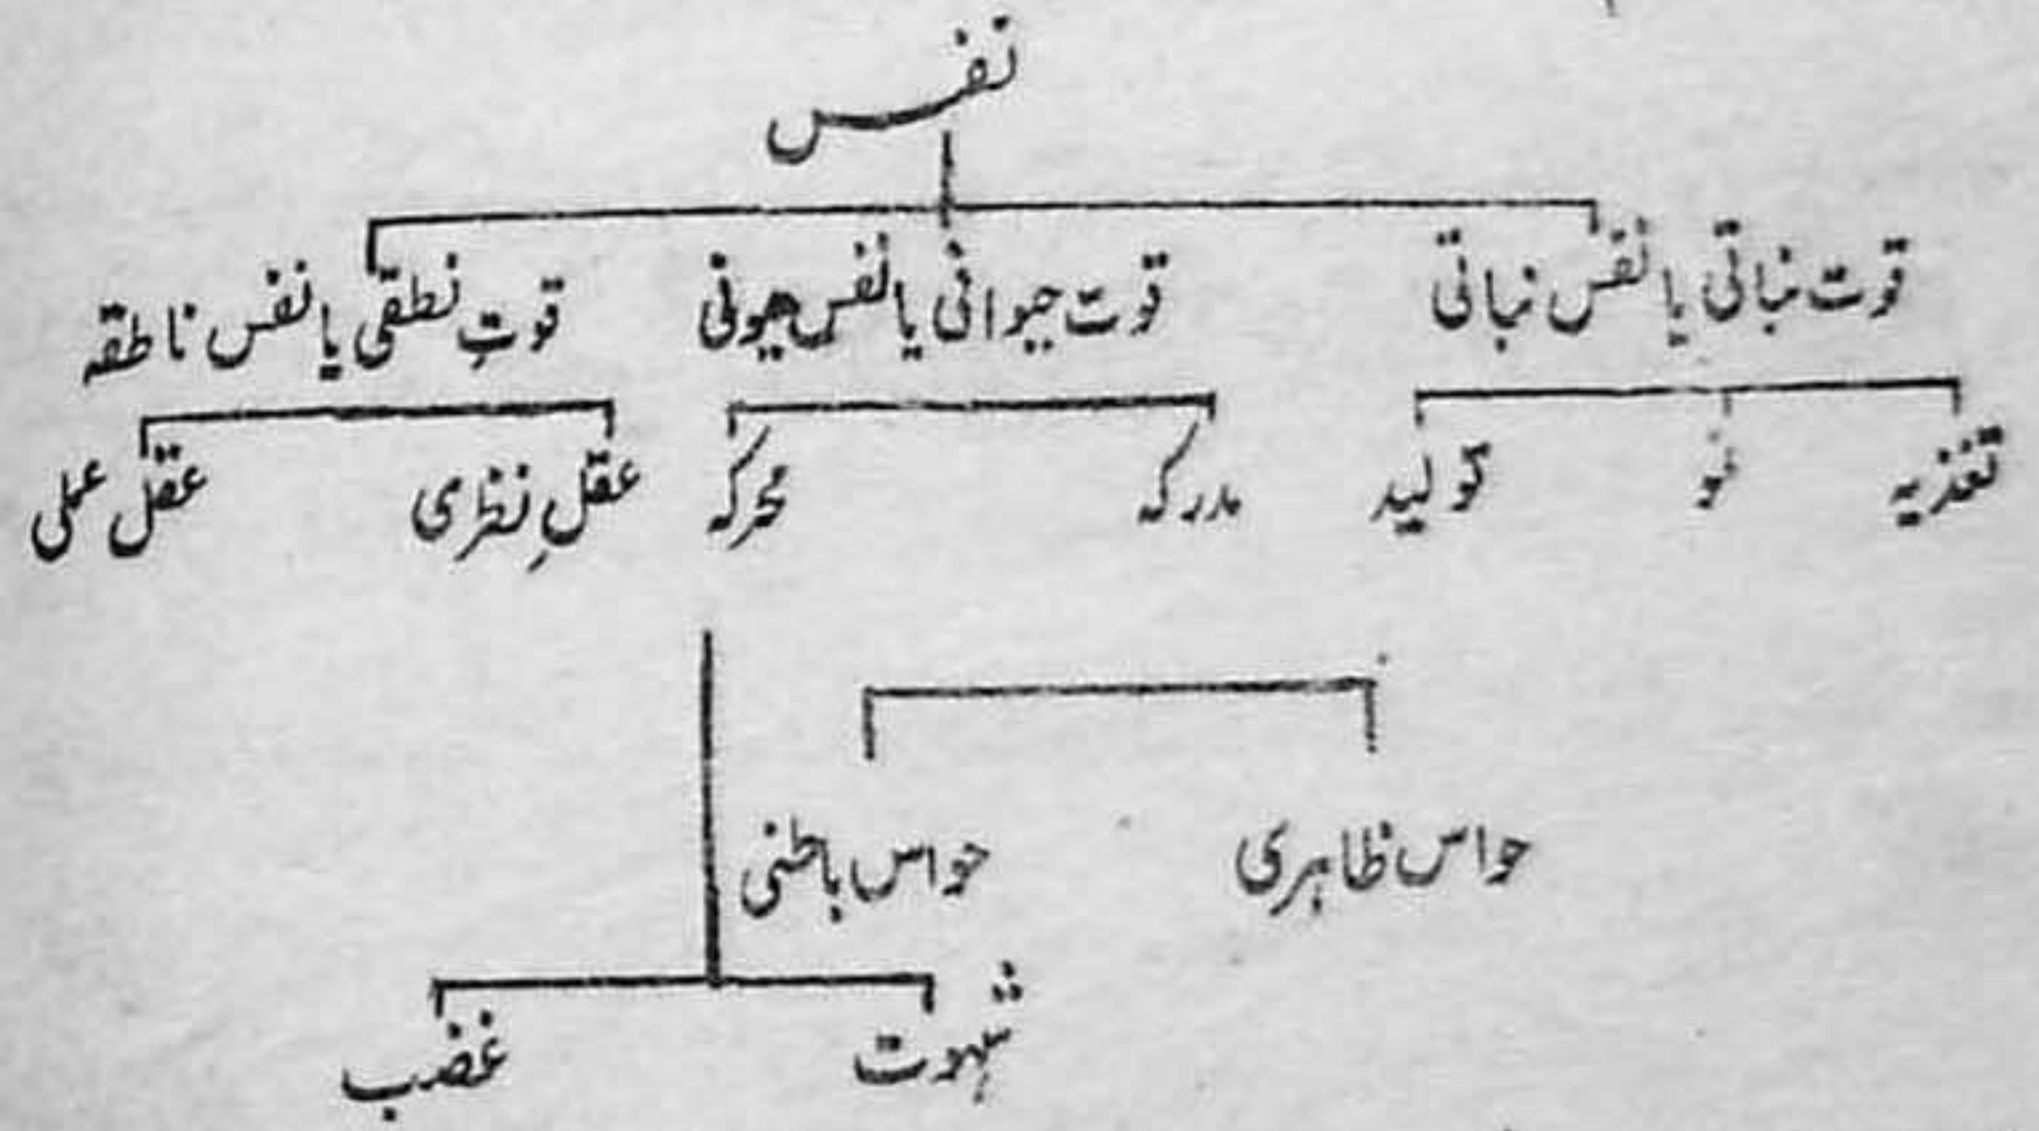 نفس
قوت نباتی یا نفس نباتی قوت حیوانی یا نفس حیونی قوتِ نطقی یا نفس ناطقہ
تغذیہ نمو تولید مدرکہ محرکہ عقلِ نظری عقل عملی
حواس ظاہری حواس باطنی
شہوت غضب